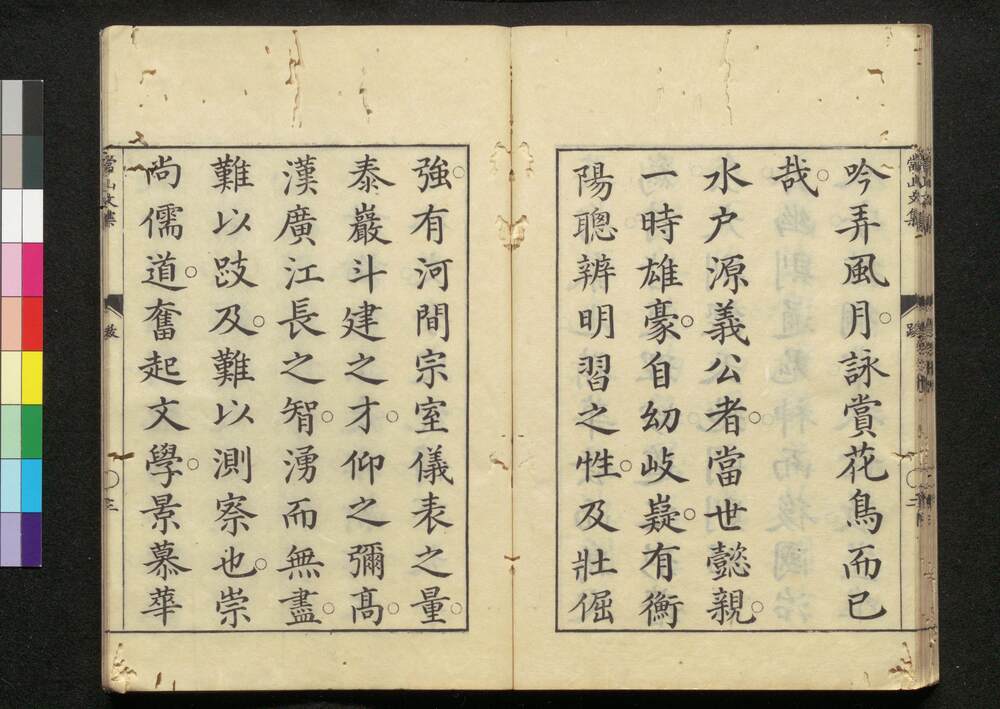 吟弄風月。詠賞花鳥而已
哉。
水戸源義公者。當世懿親。
一時雄豪。自幼岐嶷。有衡
陽聰辨明習之性。及壯倔
強。有河間宗室儀表之量。
泰巖斗建之才。仰之彌高。
漢廣江長之智。湧而無盡。
難以跂及。難以測察也。崇
尚儒道。奮起文學。景慕華
常山文集
跋
〇三
常山文集
〇三